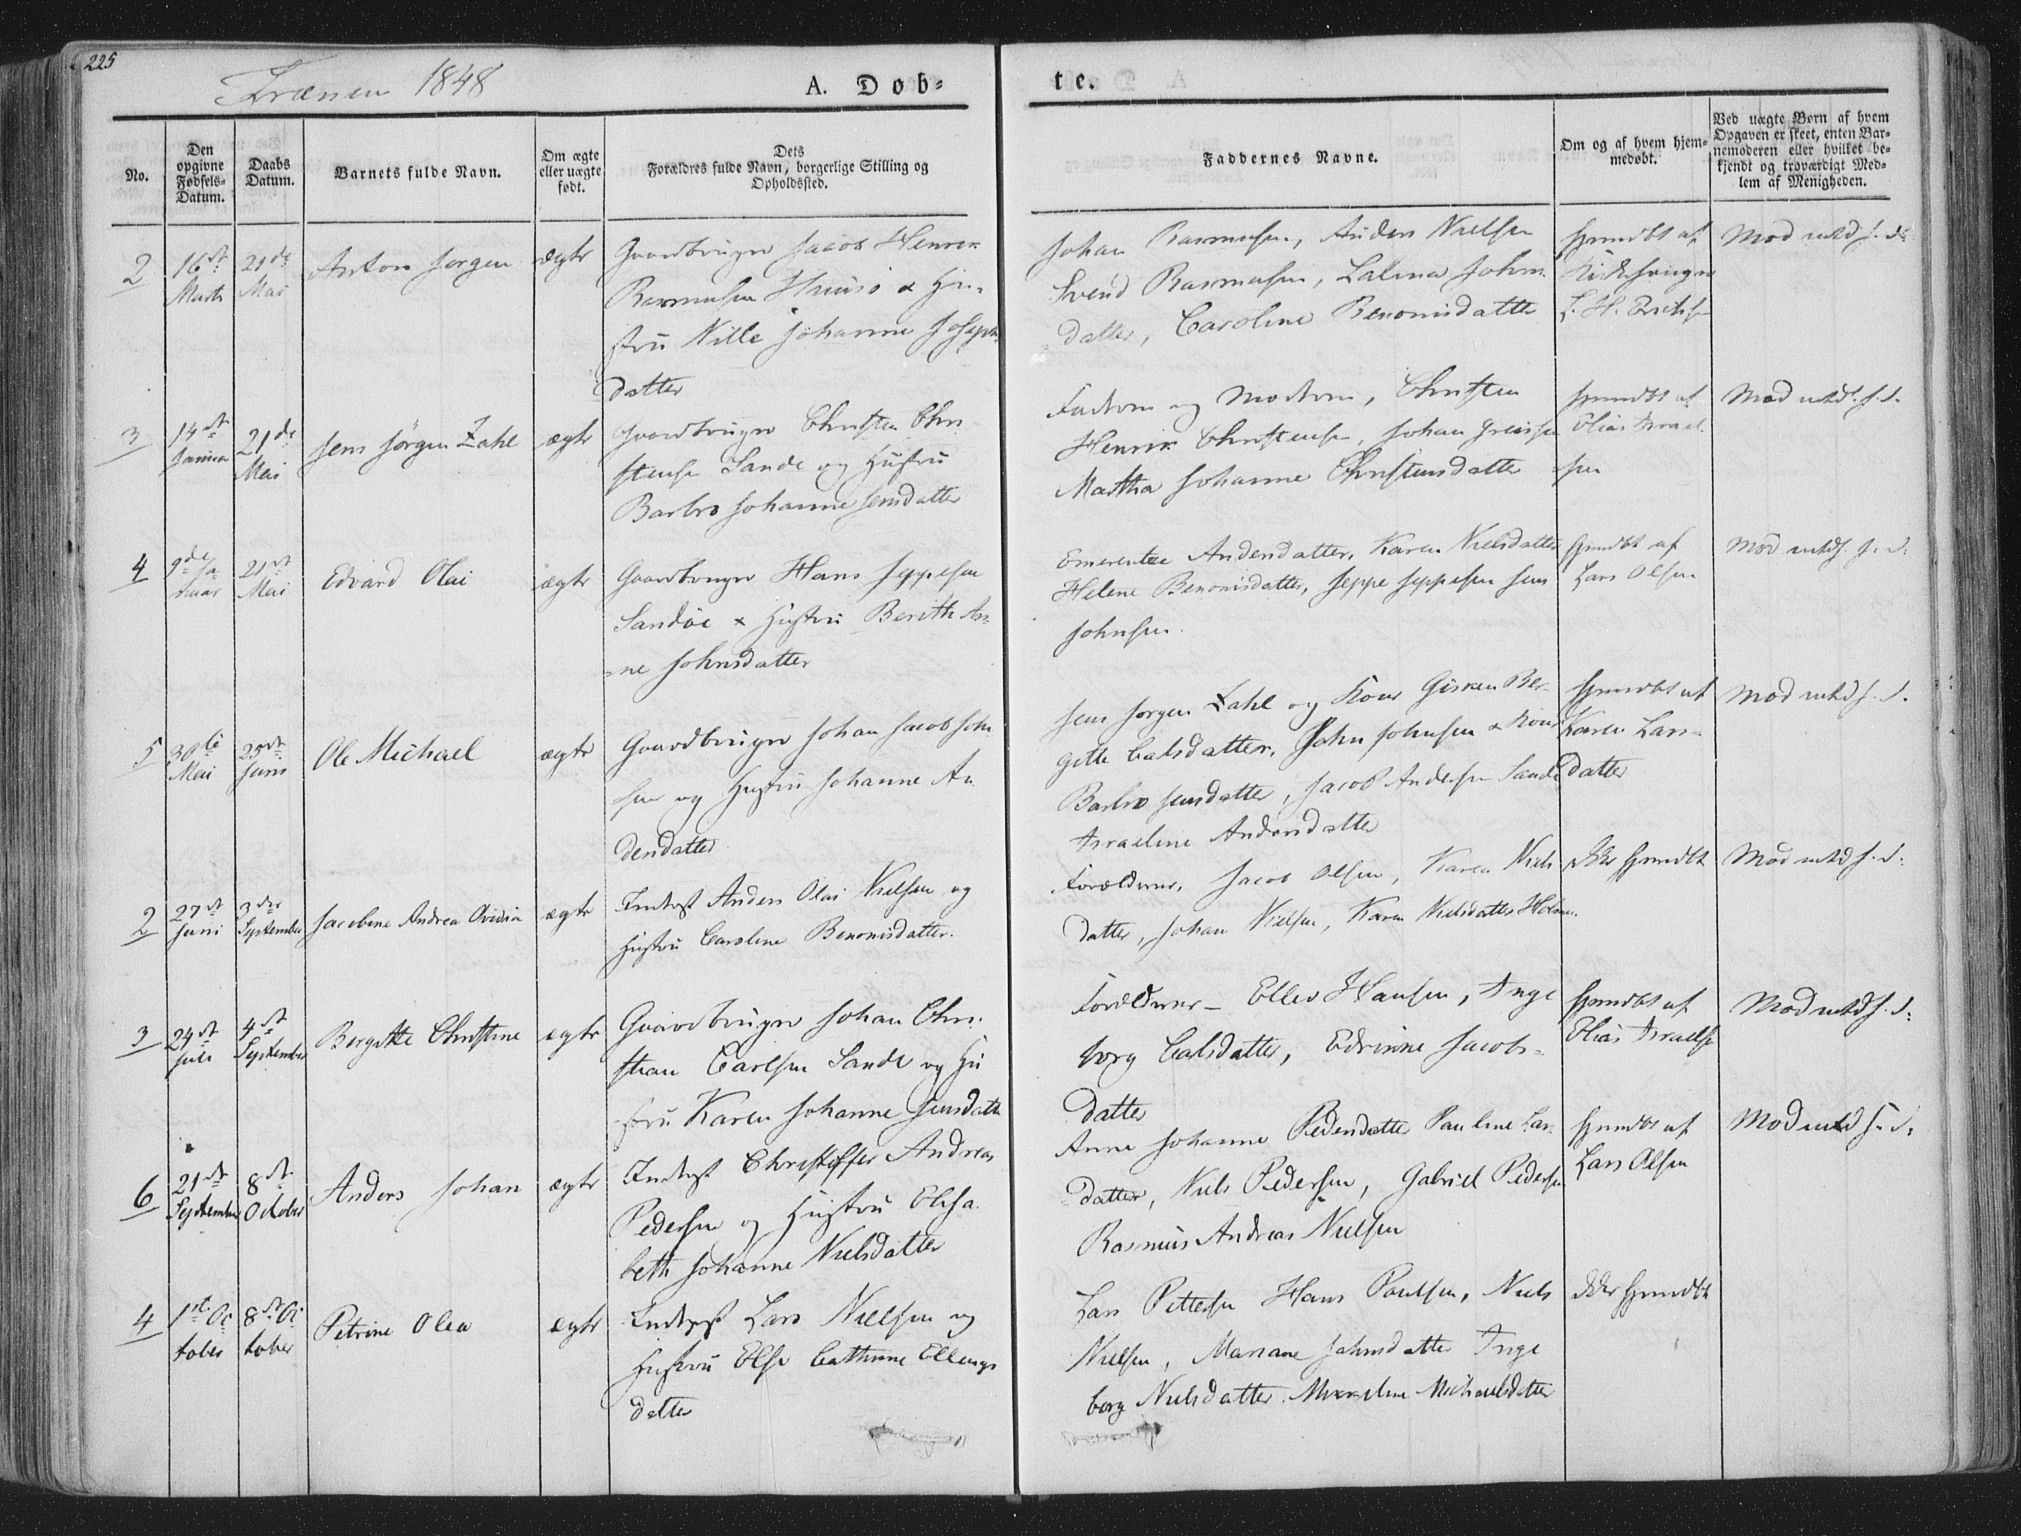 225
Trænen 1848
A. Døb-
te.
No.
Den opgivne Fødsels-Datum.
Daabs Datum.
Barnets fulde Navn.
Om ægte eller uægte født.
Dets Forældres fulde Navn, borgerlige Stilling og Opholdssted.
Faddernes Navne.
Om og af hvem hjem-medøbt.
Ved uægte Børn af hvem Opgaven er skeet, enten Bar-nemoderen eller hvilket be-kjendt og troværdigt Med-lem af Menigheden.
2
16de Marts
21de Mai
Anton Jørgen
ægte
Gaardbruger Jacob Henrik
Rasmusen Huusø & Hu-
stru Nille Johanne Joseph
datter
Johan Rasmusen, Anders Nielsen
Svend Rasmusen, Lalina Johns
datter, Caroline Benonisdatter
hjemdbt af
Kirkesanger
L. H. Erichs
3
14de Januar
21de Mai
Jens Jørgen Zahl
ægte
Gaardbruger Christen Chri
stense Sande og Hustru
Barbro Johanne Jensdatter
Farbror og Morbror, Christen
Henrik Christense, Johan
Martha Johanne Christensdatter
hjemdbt af
Elias Israel
sen
4
9de Januar
21de Mai
Edvard Olai
ægte
Gaardbruger Hans Jeppesen
Sandøe & Hustru Berith An
ne Johnsdatter
Emerentze Andersdatter, Karen Nielsdatter
Helene Benonisdatter, Jeppe Jeppesen Jens
Johnsen.
hjemdbt af
Lars Olsen
5
30te Mai
25de Juni
Ole Michael
ægte
Gaardbruger Johan Jacob John
sen og Hustru Johanne An
dersdatter
Jens Jørgen Zahl og Kone Gisken Ber-
gitte Calsdatter, John Johnsen & Kone
Barbro Jensdatter, Jacob Andersen Sande
Israeline Andersdatter
hjemdbt af
Karen Lars-
datter
2
27de Juni
3die September
Jacobine Andrea Ovidia
ægte
Inderst Anders Olai Nielsen og
Hustru Caroline Benonisdatter.
Forældrene, Jacob Olsen, Karen Niels
datter, Johan Nielsen, Karen Nielsdatter Holmen.
Ikke hjemdbt
3
24de Juli
4de September
Bergitte Christine
ægte
Gaardbruger Johan Chri
stian Carlsen Sande og Hu
stru Karen Johanne Jensdatter
Forældrene - Eller Hansen, Inge
borg Calsdatter, Edrinne Jacobs-
datter
hjemdbt af
Elias Israels
6
21de September
8de October
Anders Johan
ægte
Inderst Christoffer Andreas
Pedersen og Hustru Elisa
beth Johanne Nielsdatter
Anne Johanne Pedersdatter Pauline Lars
datter, Niels Pedersen, Gabriel Pedersen
Rasmus Andreas Nielsen
hjemdbt af
Lars Olsen
4
1ste October
8de October
Petrine Olea
ægte
Inderst Lars Nielsen og
Hustru Else Cathrine Ellings
datter
Lars Pettersen Hans Paulsen, Niels
Nielsen, Mariane Johnsdatter Inge
borg Nielsdatter. Michaelsdatter
Ikke hjemdbt